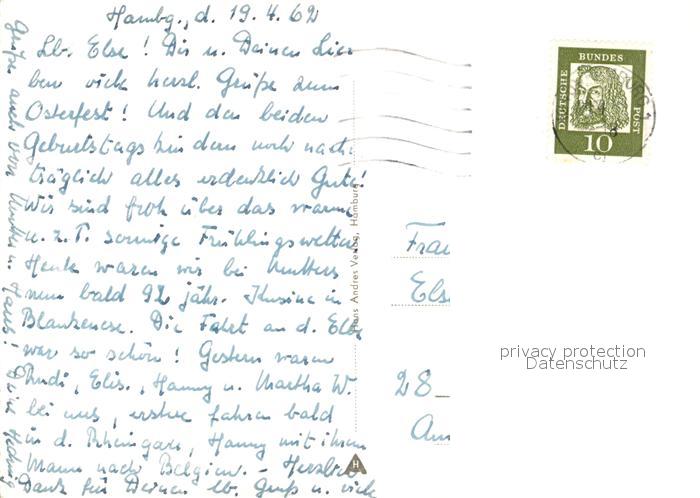 Hambg., d. 19.4.62
Lb. Else! Dir u. Deinen Lie-
ben viele herzl. Grüße zum
Osterfest! Und den beiden
Geburtstagskindern noch nach-
träglich alles erdenklich Gute!
Wir sind froh über das warme
u. z. T. sonnige Frühlingswetter.
Heute waren wir bei Mutters
nun bald 92 jähr. Kusine in
Blankenese. Die Fahrt an d. Elbe
war so schön! Gestern waren
Rudi, Elis., Hanny u. Martha W.
bei uns, erstere fahren bald
in d. Rheingau, Hanny mit ihrem
Mann nach Belgien. – Herzlich
Dank für Deinen lb. Gruß u. viele
Grüße auch von Mutter u. Hans! Deine Hedwig
Hans Andres Verlag, Hamburg
H
DEUTSCHE
BUNDES
POST
10
Frau
Else
28
Am
privacy protection
Datenschutz